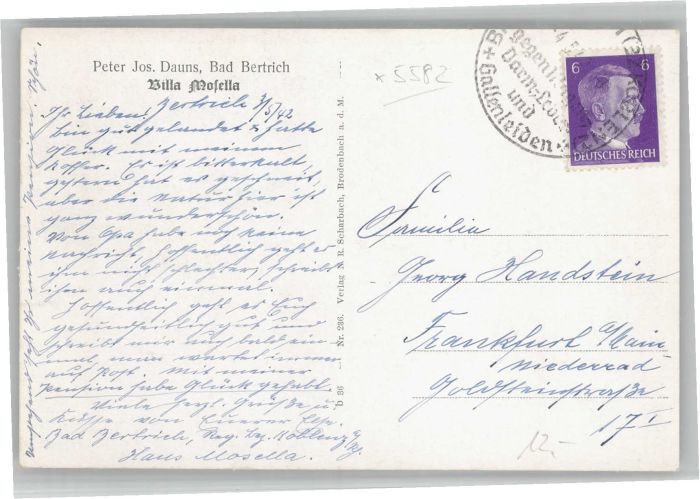 Peter Jos. Dauns, Bad Bertrich
Villa Mosella
Bertrich 3/5/42
Ihr Lieben!
bin gut gelandet & hatte
Glück mit meinem
Koffer. Es ist bitterkalt,
gestern hat es geschneit,
aber die Natur hier ist
ganz wunderschön.
Von Opa habe noch keine
Nachricht, hoffentlich geht es
ihm nicht schlechter, schreibt
ihm auch einmal.
Hoffentlich geht es Euch
gesundheitlich gut und
schreibt mir auch bald ein-
mal, man wartet immer
auf Post. Mit meiner
Pension habe Glück gehabt.
Viele herzl. Grüße u.
Küsse von Euerer Else.
Bad Bertrich, Reg. Bez. Koblenz
Haus Mosella.
Umstehend seht Ihr meine Pension.
D 86 Nr. 236. Verlag N. R. Scharbach, Brodenbach a. d. M.
*5582
gegen
Darm-Leber
und
Gallenleiden
6 6
DEUTSCHES REICH
Familie
Georg Handstein
Frankfurt a/Main
Niederrad
Goldsteinstraße
17 I
12.-